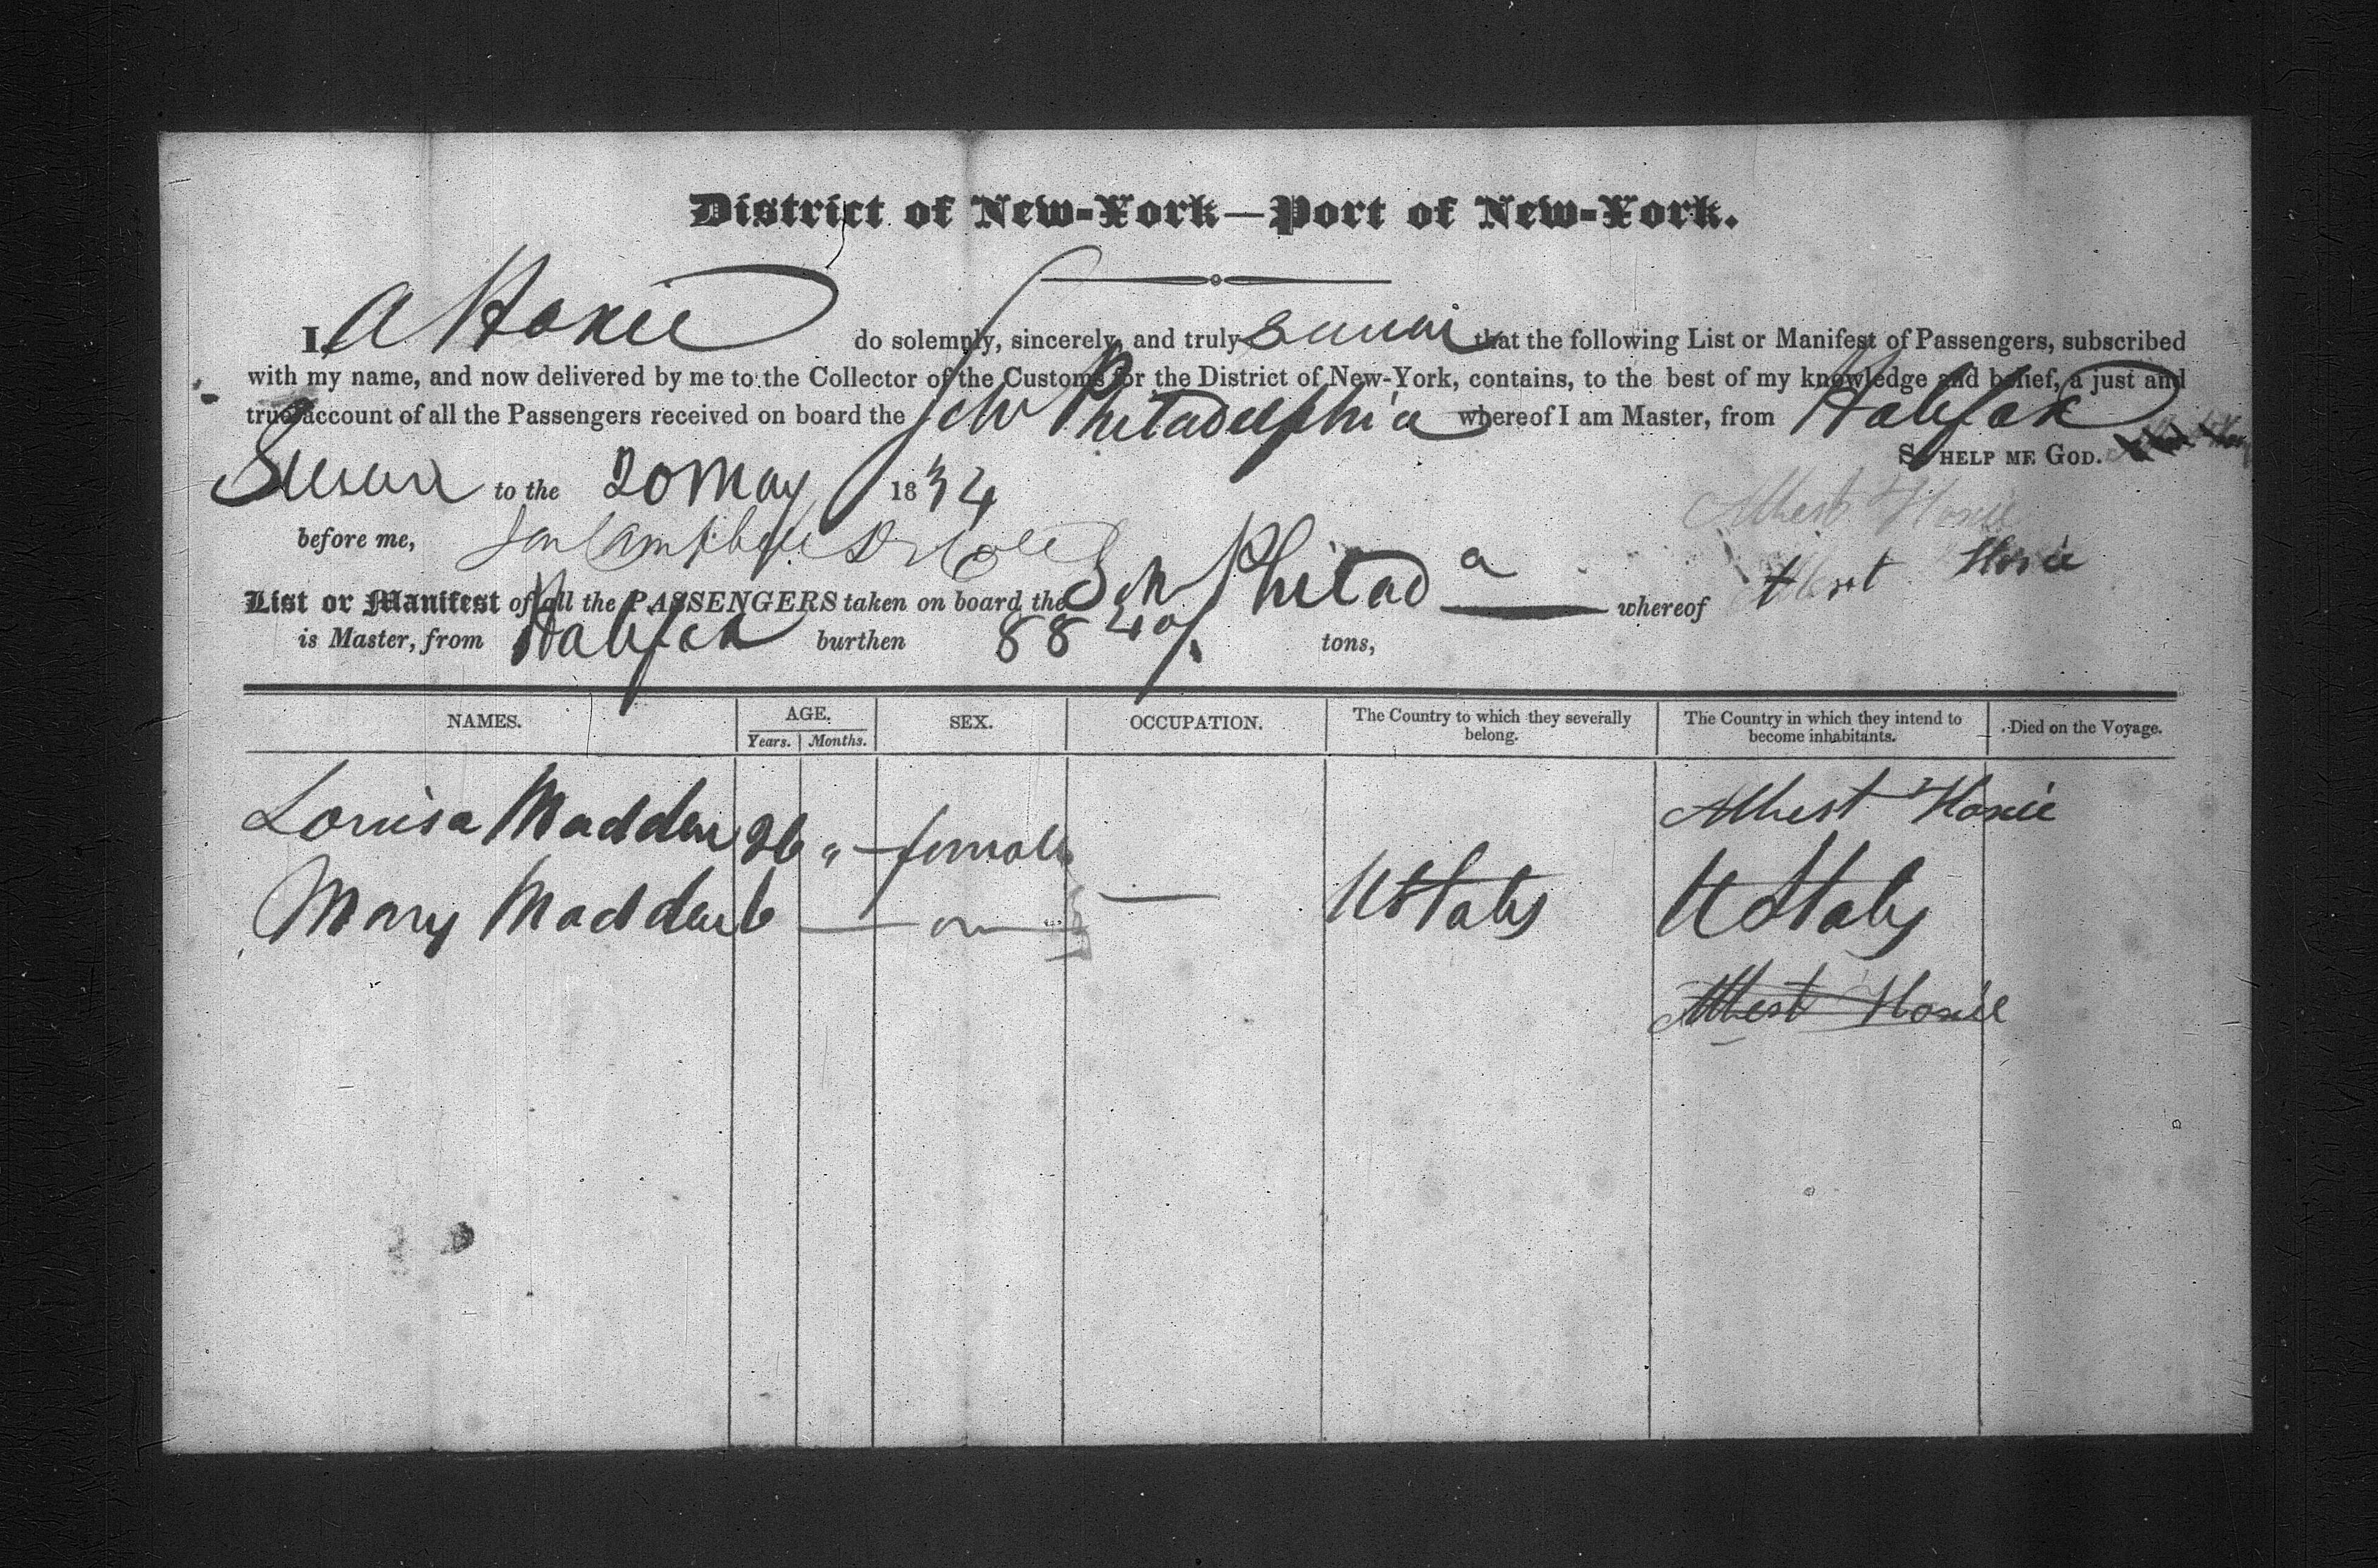 District of New-York—Port of New-York.
I, A Hoxie do solemnly, sincerely, and truly swear that the following List or Manifest of Passengers, subscribed
with my name, and now delivered by me to the Collector of the Customs for the District of New-York, contains, to the best of my knowledge and belief, a just and
true account of all the Passengers received on board the Sch Philadelphia whereof I am Master, from Halifax
So HELP ME GOD.
Sworn to the 20 May 1834 Albert Hoxie
before me,
List or Manifest of all the PASSENGERS taken on board the Sch Philad a whereof Albert Hoxie
is Master, from Halifax burthen 88 40/ tons,
NAMES. AGE. SEX. OCCUPATION. The Country to which they severally belong. The Country in which they intend to become inhabitants. Died on the Voyage.
Years. Months.
Albert Hoxie
Louisa Madden 26 " female
Mary Madden 6 — — UStates UStates
Albert Hoxie